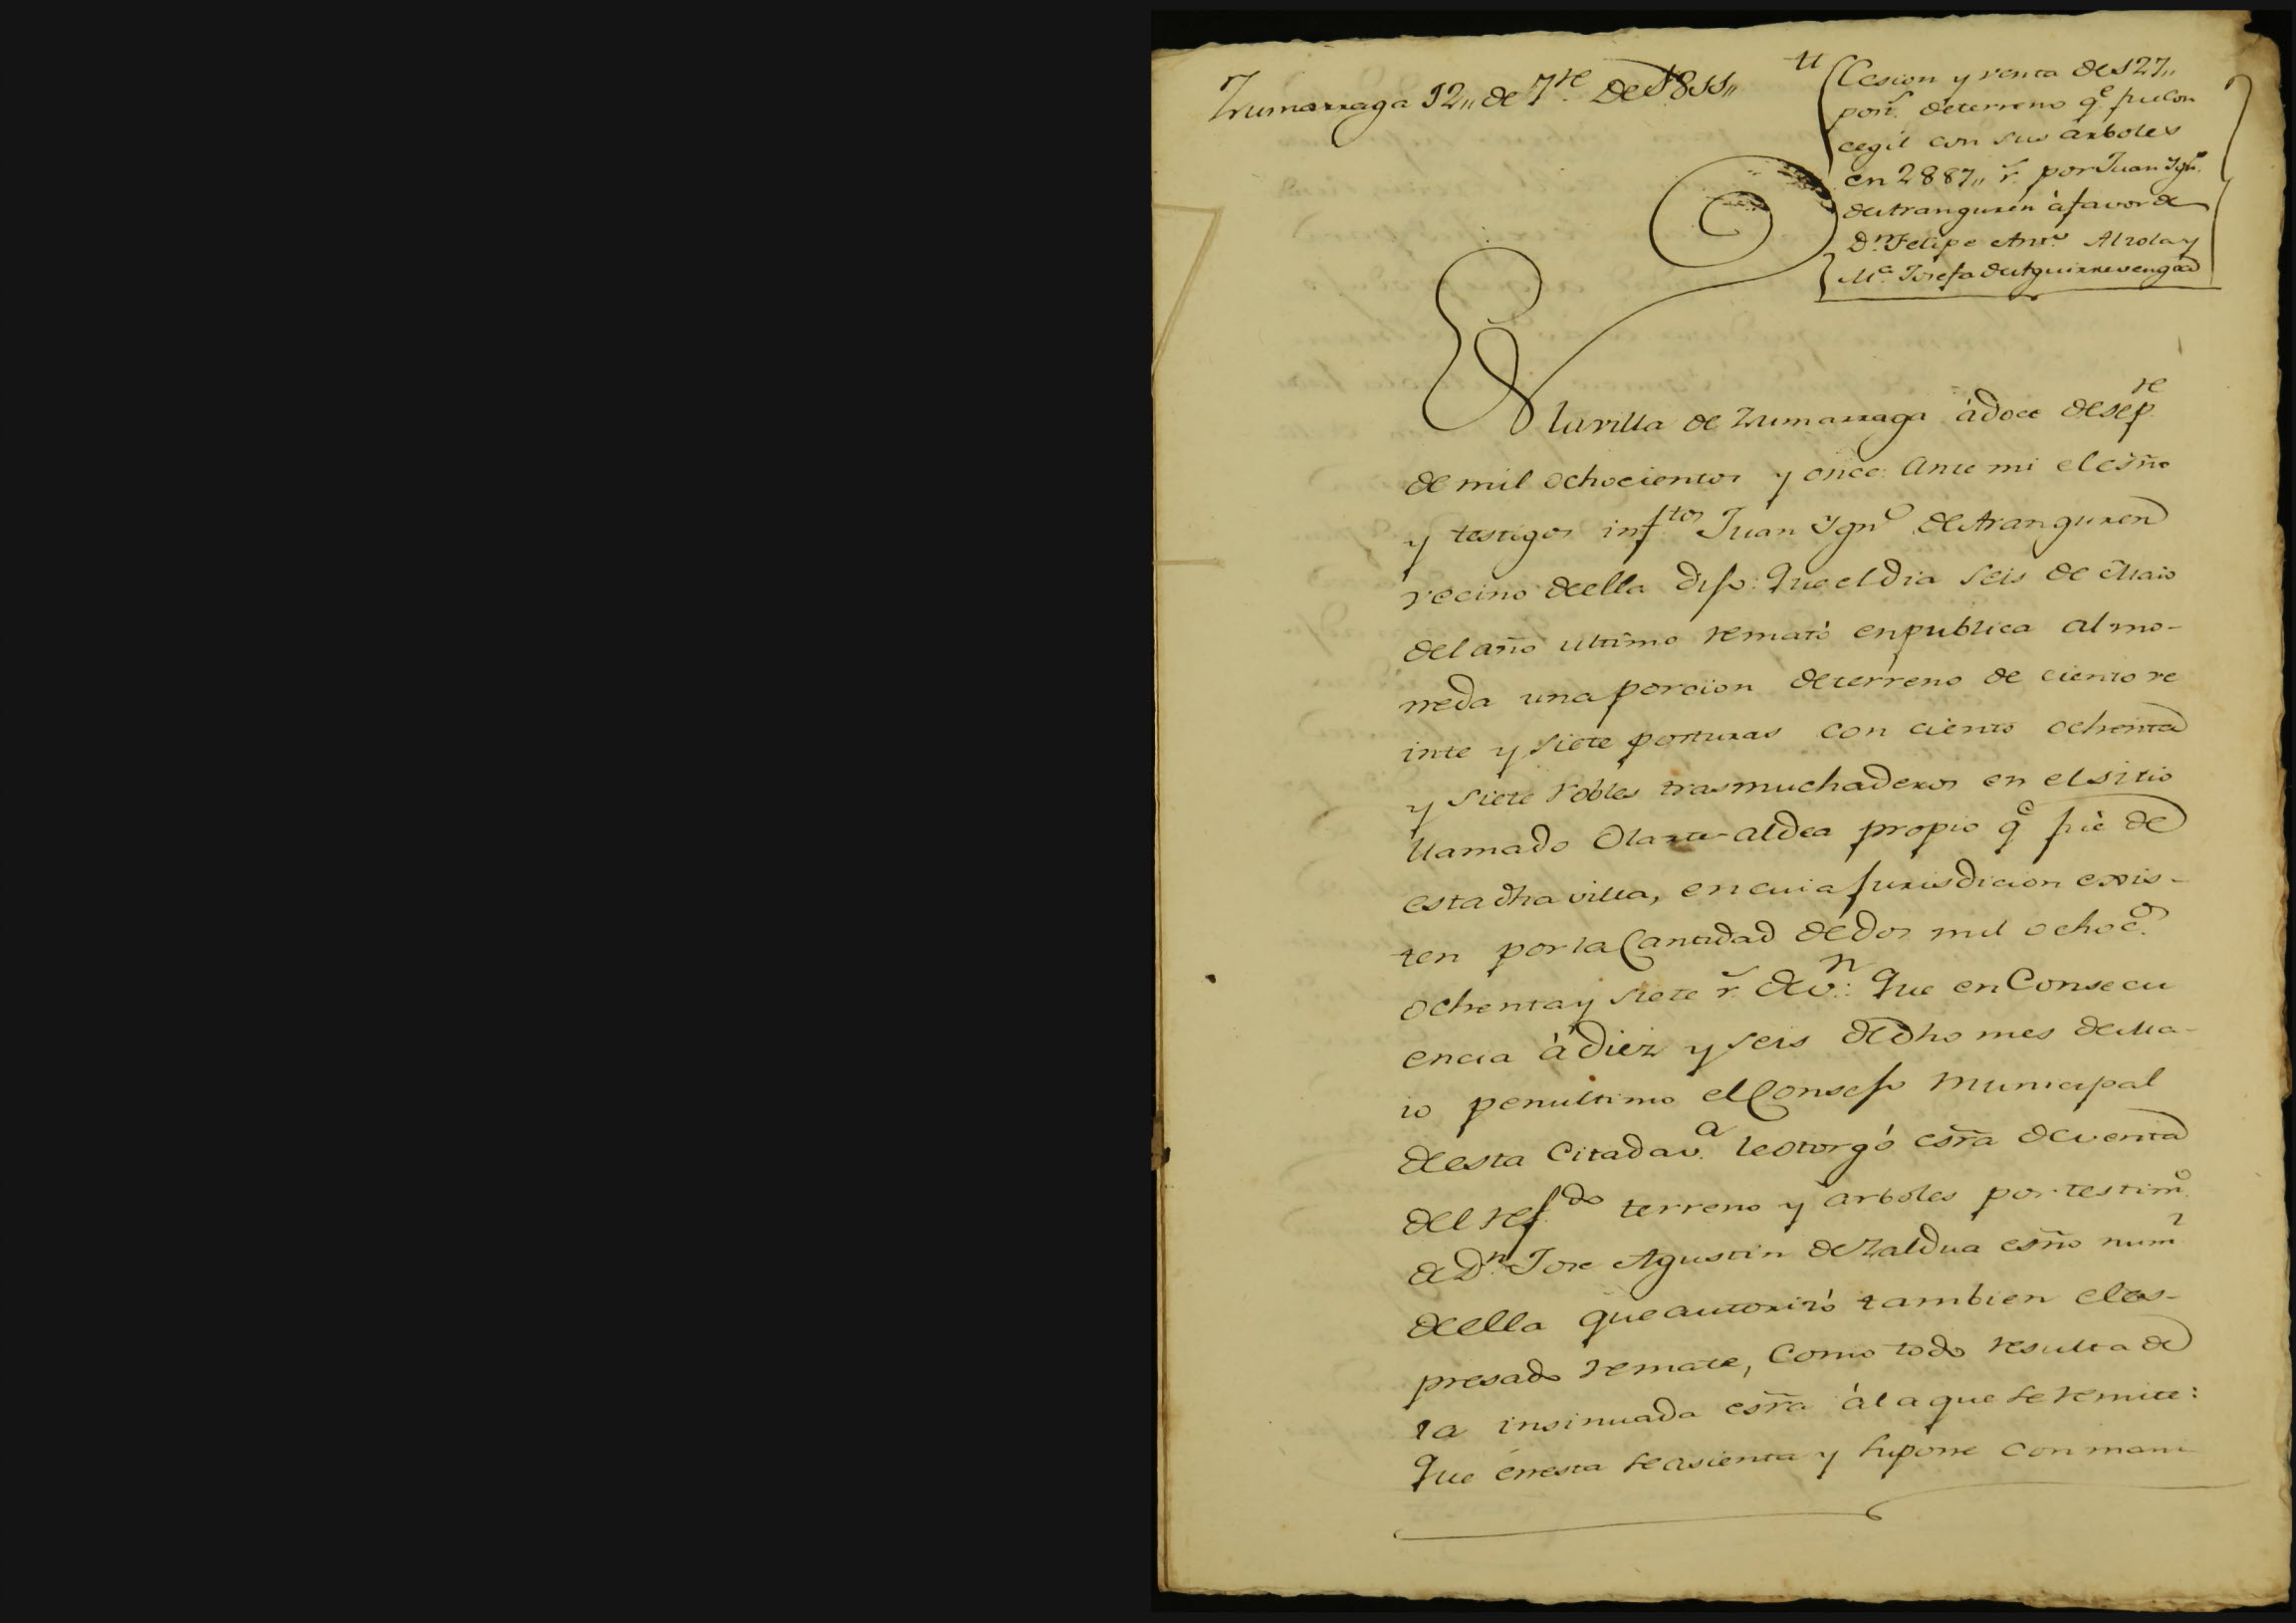 Zumarraga 12,, de 7.re De 1811,,
Cesion y venta de 127,,
port.s de terreno q.e fue con
cegil con sus árboles
en 2887,, r.s por Juan Ygn.o
de Aranguren á favor de
D.n Felipe Ant.o Alzola y
M.a Josefa de Aguirrevengoa
En la villa de Zumarraga á doce de sep.re
de mil ochocientos y once: Ante mi el esño
y testigos inf.tos Juan Ygn.o de Aranguren
vecino de ella dijo: Que el dia seis de Maio
del año ultimo remató en publica almo-
neda una porcion de terreno de ciento ve
inte y siete posturas con ciento ochenta
y siete robles trasmuchaderos en el sitio
llamado Olarte-aldea propio q.e fué de
esta dha villa, en cuia jurisdicion exis-
ten por la Cantidad de dos mil ochoc.os
ochenta y siete r.s de v.n: Que en Consecu
encia á diez y seis de dho mes de Ma-
io penultimo el Consejo Municipal
de esta Citada v.a le otorgó esrã de venta
del ref.do terreno y arboles por testim.o
de D.n Jose Agustin de Zaldua esño num.l
de ella que autorizó tambien el es-
presado remate, Como todo resulta de
la insinuada esrã á la que se remite:
Que én esta se asienta y supone con mani